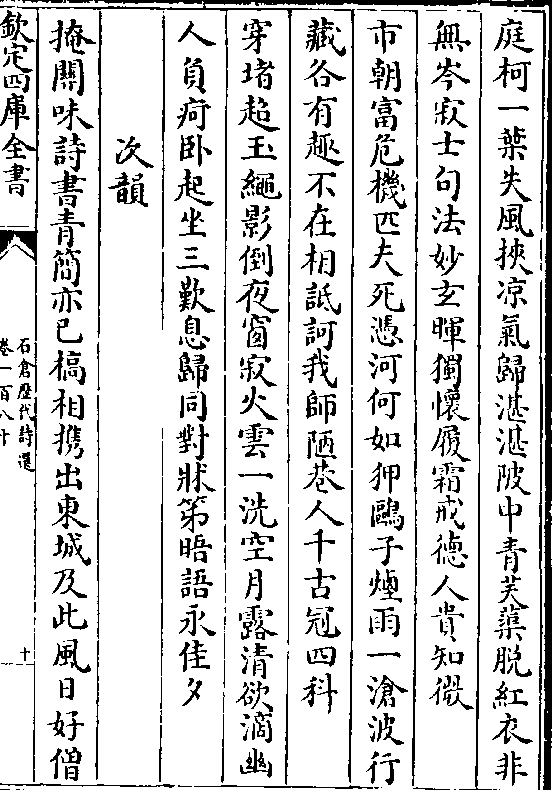 庭柯一葉失風挾凉氣歸湛湛陂中青芙蕖脱紅衣非
無岑寂士句法妙玄暉獨懐履霜戒徳人貴知微
市朝富危機匹夫死憑河何如狎鷗子煙雨一滄波行
藏各有趣不在相詆訶我師陋巷人千古冠四科
穿堵起玉繩影倒夜窗寂火雲一洗空月露清欲滴幽
人負疴卧起坐三歎息歸同對牀第晤語永佳夕
次韻
掩關味詩書青簡亦已槁相携出東城及此風日好僧
欽定四庫全書
石倉歴代詩選
卷一百八十
十